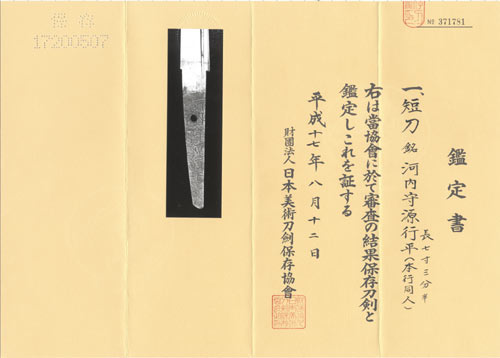 鑑定書
一、短刀 銘 河内守源行平(本行同人)
長七寸三分半
右は當協會に於て審査の結果保存刀剣と
鑑定しこれを証する
平成十七年八月十二日
財團法人 日本美術刀劍保存協會
№ 371781
保存
17200507